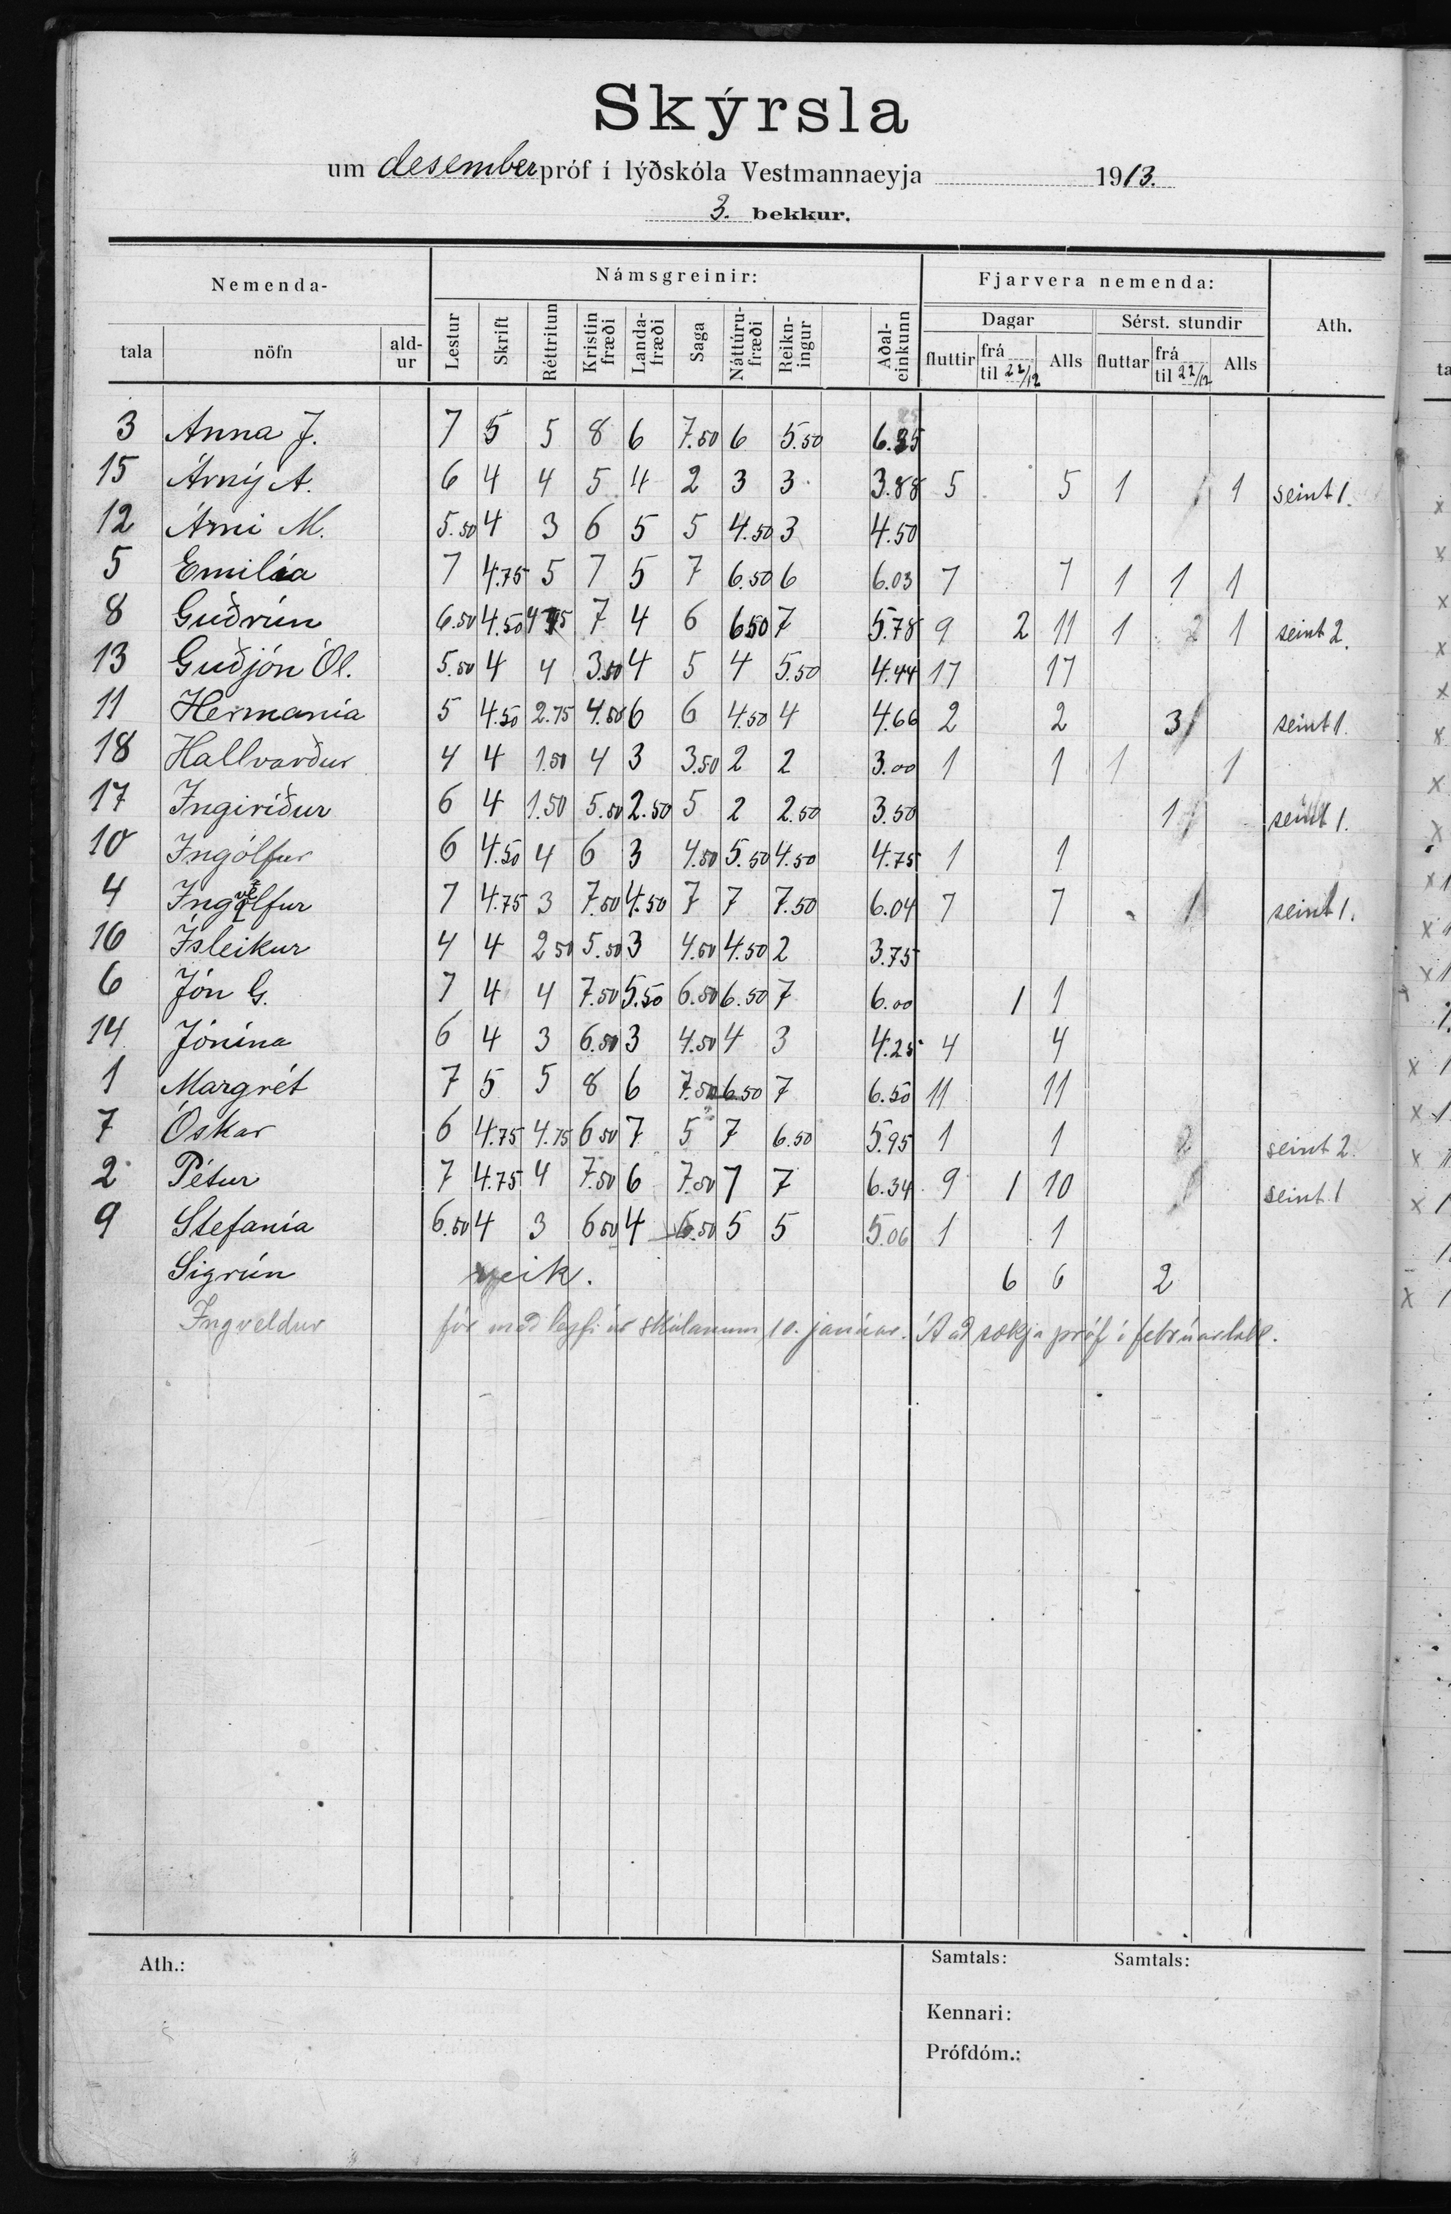 Skýrsla
um desember próf í lýðskóla Vestmannaeyja 1913.
3. bekkur.
Nemenda- Námsgreinir: Fjarvera nemenda: Ath.
tala nöfn ald-ur Lestur Skrift Réttritun Kristin fræði Landa-fræði Saga Náttúru-fræði Reikn-ingur Aðal-einkunn Dagar Sérst. stundir
fluttir frá til 22/12 Alls fluttar frá til 22/12 Alls
3 Anna J. 7 5 5 8 6 7.50 6 5.50 6.25
15 Árný A. 6 4 4 5 4 2 3 3 3.88 5 5 1 1 1 seint 1.
12 Árni M. 5.50 4 3 6 5 5 4.50 3 4.50
5 Emilía 7 4.75 5 7 5 7 6.50 6 6.03 7 7 1 1 1
8 Guðrún 6.50 4.50 4.75 7 4 6 6.50 7 5.78 9 2 11 1 2 1 seint 2.
13 Guðjón Ól. 5.50 4 4 3.50 4 5 4 5.50 4.44 17 17
11 Hermanía 5 4.50 2.75 4.50 6 6 4.50 4 4.66 2 2 3 seint 1.
18 Hallvarður 4 4 1.50 4 3 3.50 2 2 3.00 1 1 1 1
17 Ingiríður 6 4 1.50 5.50 2.50 5 2 2.50 3.50 1 seint 1.
10 Ingólfur 6 4.50 4 6 3 4.50 5.50 4.50 4.75 1 1
4 Ingvélfur 7 4.75 3 7.50 4.50 7 7 7.50 6.04 7 7 1 seint 1.
16 Ísleikur 4 4 2.50 5.50 3 4.50 4.50 2 3.75
6 Jón G. 7 4 4 7.50 5.50 6.50 6.50 7 6.00 1 1
14 Jónína 6 4 3 6.50 3 4.50 4 3 4.25 4 4
1 Margrét 7 5 5 8 6 7.50 6.50 7 6.50 11 11
7 Óskar 6 4.75 4.75 6.50 7 5 7 6.50 5.95 1 1 2 seint 2
2 Pétur 7 4.75 4 7.50 6 7.50 7 7 6.34 9 1 10 1 seint 1
9 Stefanía 6.50 4 3 6.50 4 6.50 5 5 5.06 1 1
Sigrún veik. 6 6 2
Ingveldur fór með leyfi úr skólanum 10. janúar. Á að sækja próf í febrúarlok.
Ath.: Samtals: Samtals:
Kennari:
Prófdóm.: